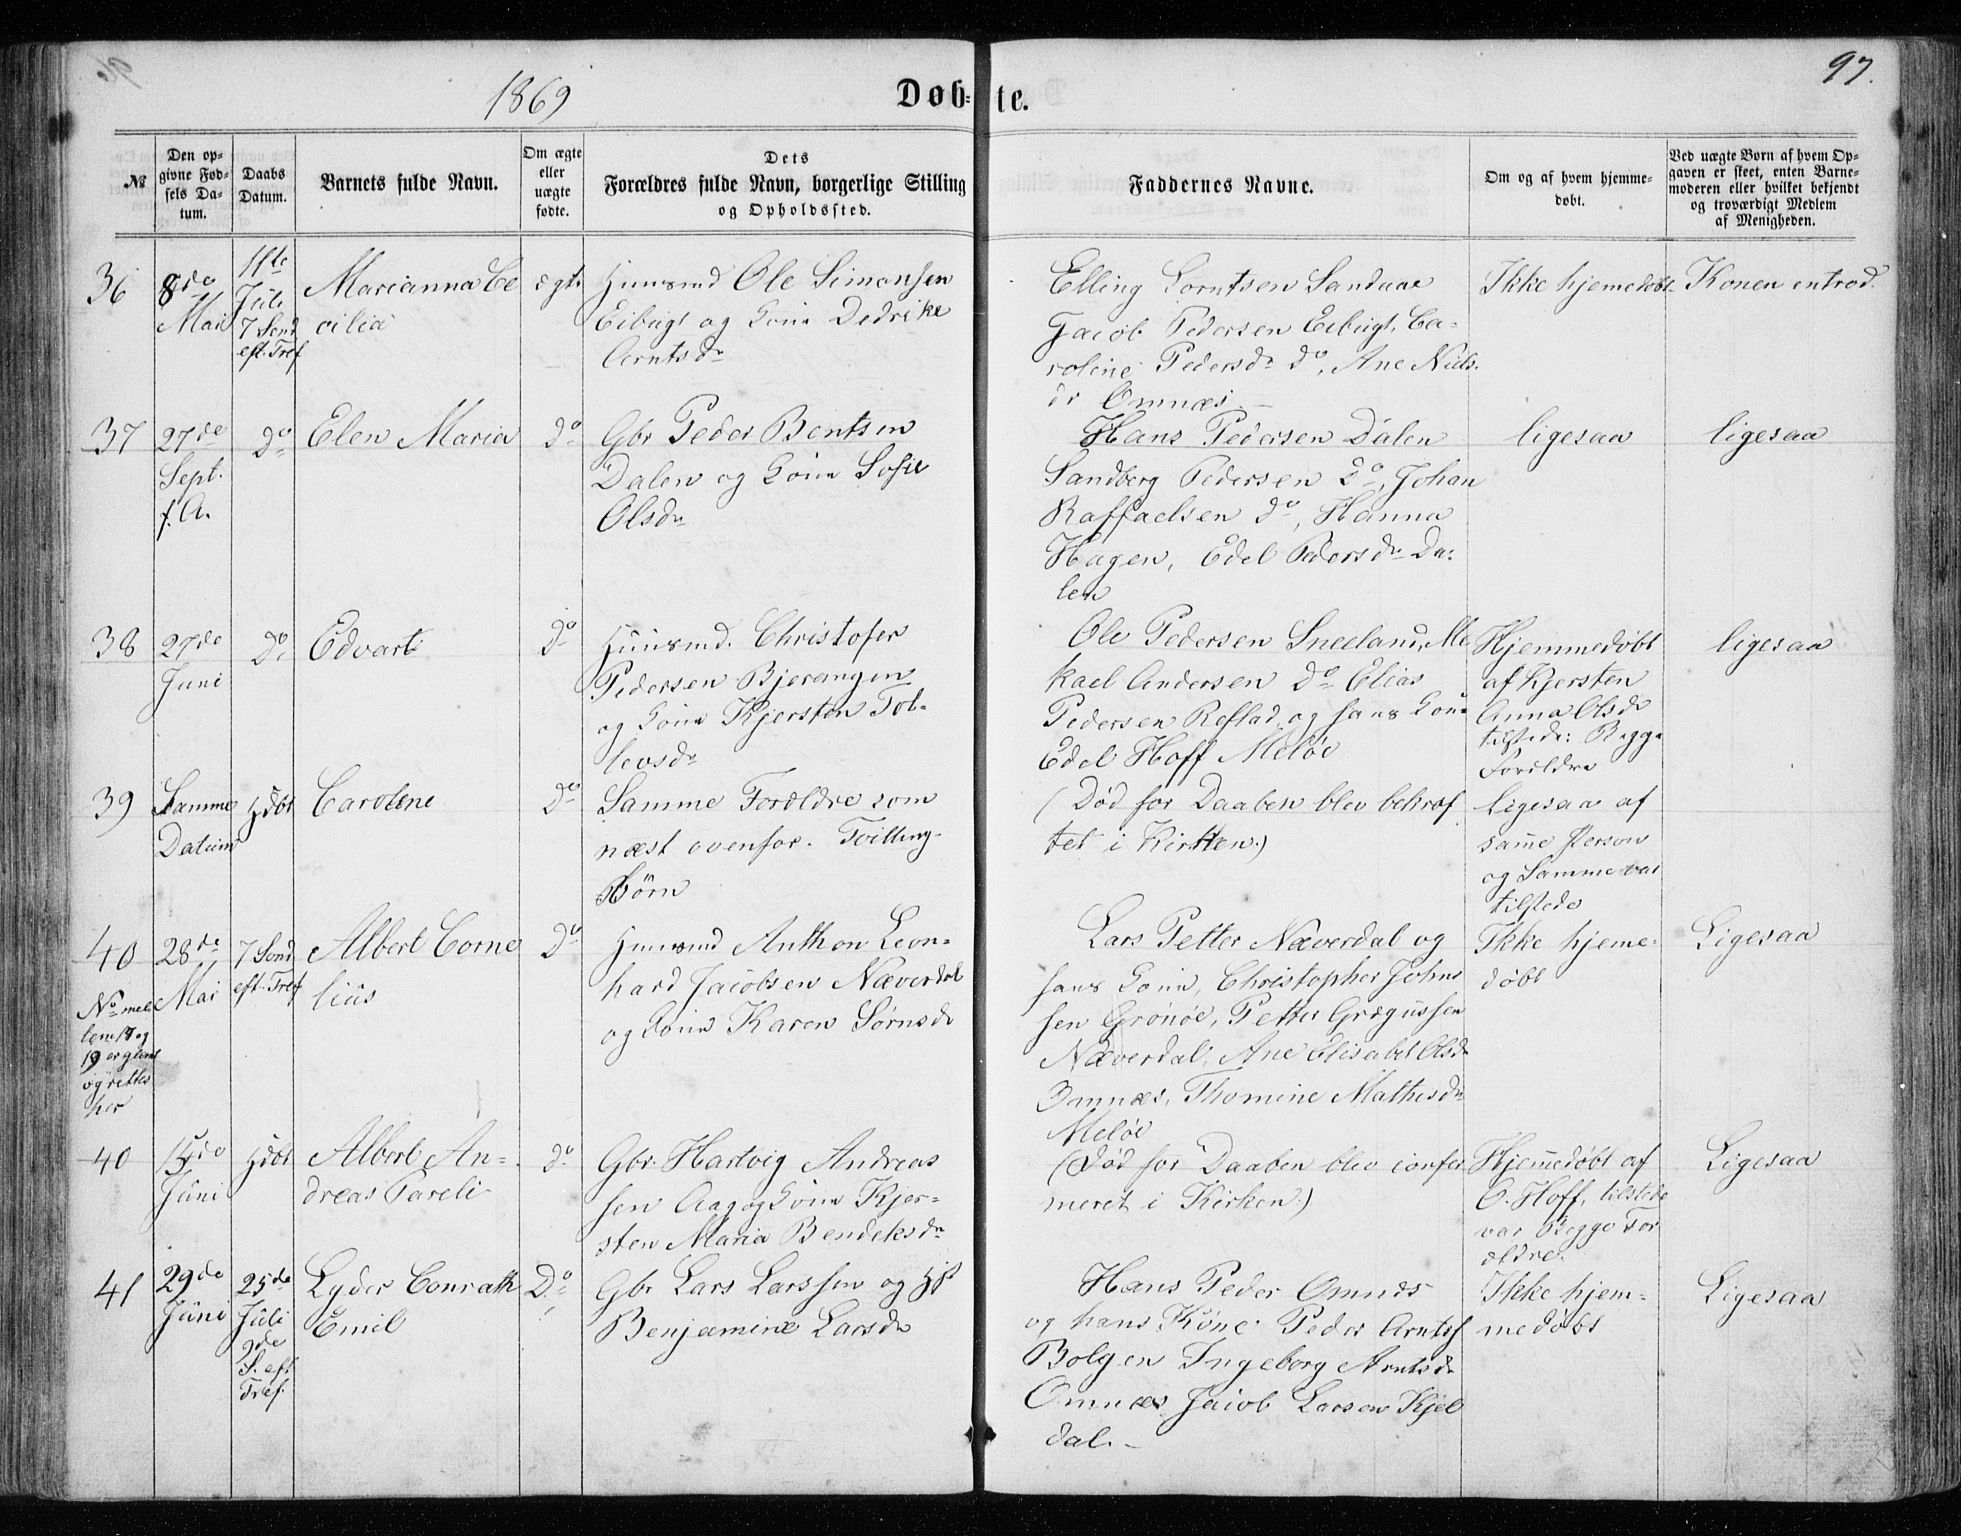 1869
Døb-te.
97.
№
Den opgivne Fødsels Datum.
Daabs Datum.
Barnets fulde Navn.
Om ægte eller uægte fødte.
Dets Forældres fulde Navn, borgerlige Stilling og Opholdssted.
Faddernes Navne.
Om og af hvem hjemmedøbt.
Ved uægte Børn af hvem Opgaven er skeet, enten Barnemoderen eller hvilket bekjendt og troværdigt Medlem af Menigheden.
36
8de
Mai
11te
Juli
7 Sønd
eft. Tref
Marianna Ce
cilia
ægte
Huusmd Ole Simonsen
Eibugt og Kone Dedrike
Arntsdr
Elling Lorntsen Sandaae
Jacob Pedersen Eibugt, Ca-
roline Pedersdr do, Ane Niels
dr Omnæs
Ikke hjemedøbt
Konen introd.
37
27de
Sept.
f. A.
Do
Elen Maria
Do
Gbr Peder Bentsen
Dalen og Kone Sofie
Olsdr
Hans Pedersen Dalen
Sandberg Pedersen Do, Johan
Raffaelsen do, Hanna
Hagen, Edel Pedersdr Da-
len
ligesaa
ligesaa
38
27de
Juni
Do
Edvart
Do
Huusmd. Christofer
Pedersen Bjerangen
og Kone Kjersten Tol-
levsdr
Ole Pedersen Sneeland, Mi
kael Andersen Do Elias
Pedersen Reflad og hans Kone
Edel Hoff Meløe
Hjemmedøbt
af Kjersten
Anna Olsdr
tilstede: Begge
Forældre
ligesaa
39
Samme
Datum
Hdbt
Carolene
Do
Samme Forældre som
næst ovenfor. Tvilling-
Børn
(Død før Daaben blev bekræf
tet i Kirken.)
Ligesaa af
samme Person
og Samme var
tilstede
40
No mel
lem 18 og
19 er glemt
og rettes
her
28de
Mai
7 Sønd
eft. Tref
Albert Corne
lius
Do
Huusmd Anthon Leon-
hard Jacobsen Næverdal
og Kone Karen Sørnsdr
Lars Petter Næverdal og
hans Kone, Christopher Johns
sen Grønøe, Petter Grægussen
Næverdal, Ane Elisabet Olsdr
Omnæs, Thomine Mathisdr
Meløe
Ikke hjeme-
døbt
Ligesaa
40
15de
Juni
Hdbt
Albert An-
dreas Pareli
do
Gbr. Hartvig Andreas
sen Aag og Kone Kjer-
sten Maria Bendeksdr
(Død før Daaben blev confir
meret i Kirken.)
Hjemedøbt af
O. Hoff, tilstede
var Begge For
ældre.
Ligesaa
41
29de
Juni
25de
Juli
9de
S. eft.
Tref.
Lyder Conrath
Emil
Do
Gbr Lars Larssen og Hst
Benjamine Larsdr
Hans Peder Omnæs
og hans Kone Peder Arntsf
Bolgen Ingeborg Arntsdr
Omnæs Jacob Larsen Kjel
dal.
Ikke hjem-
medøbt
Ligesaa